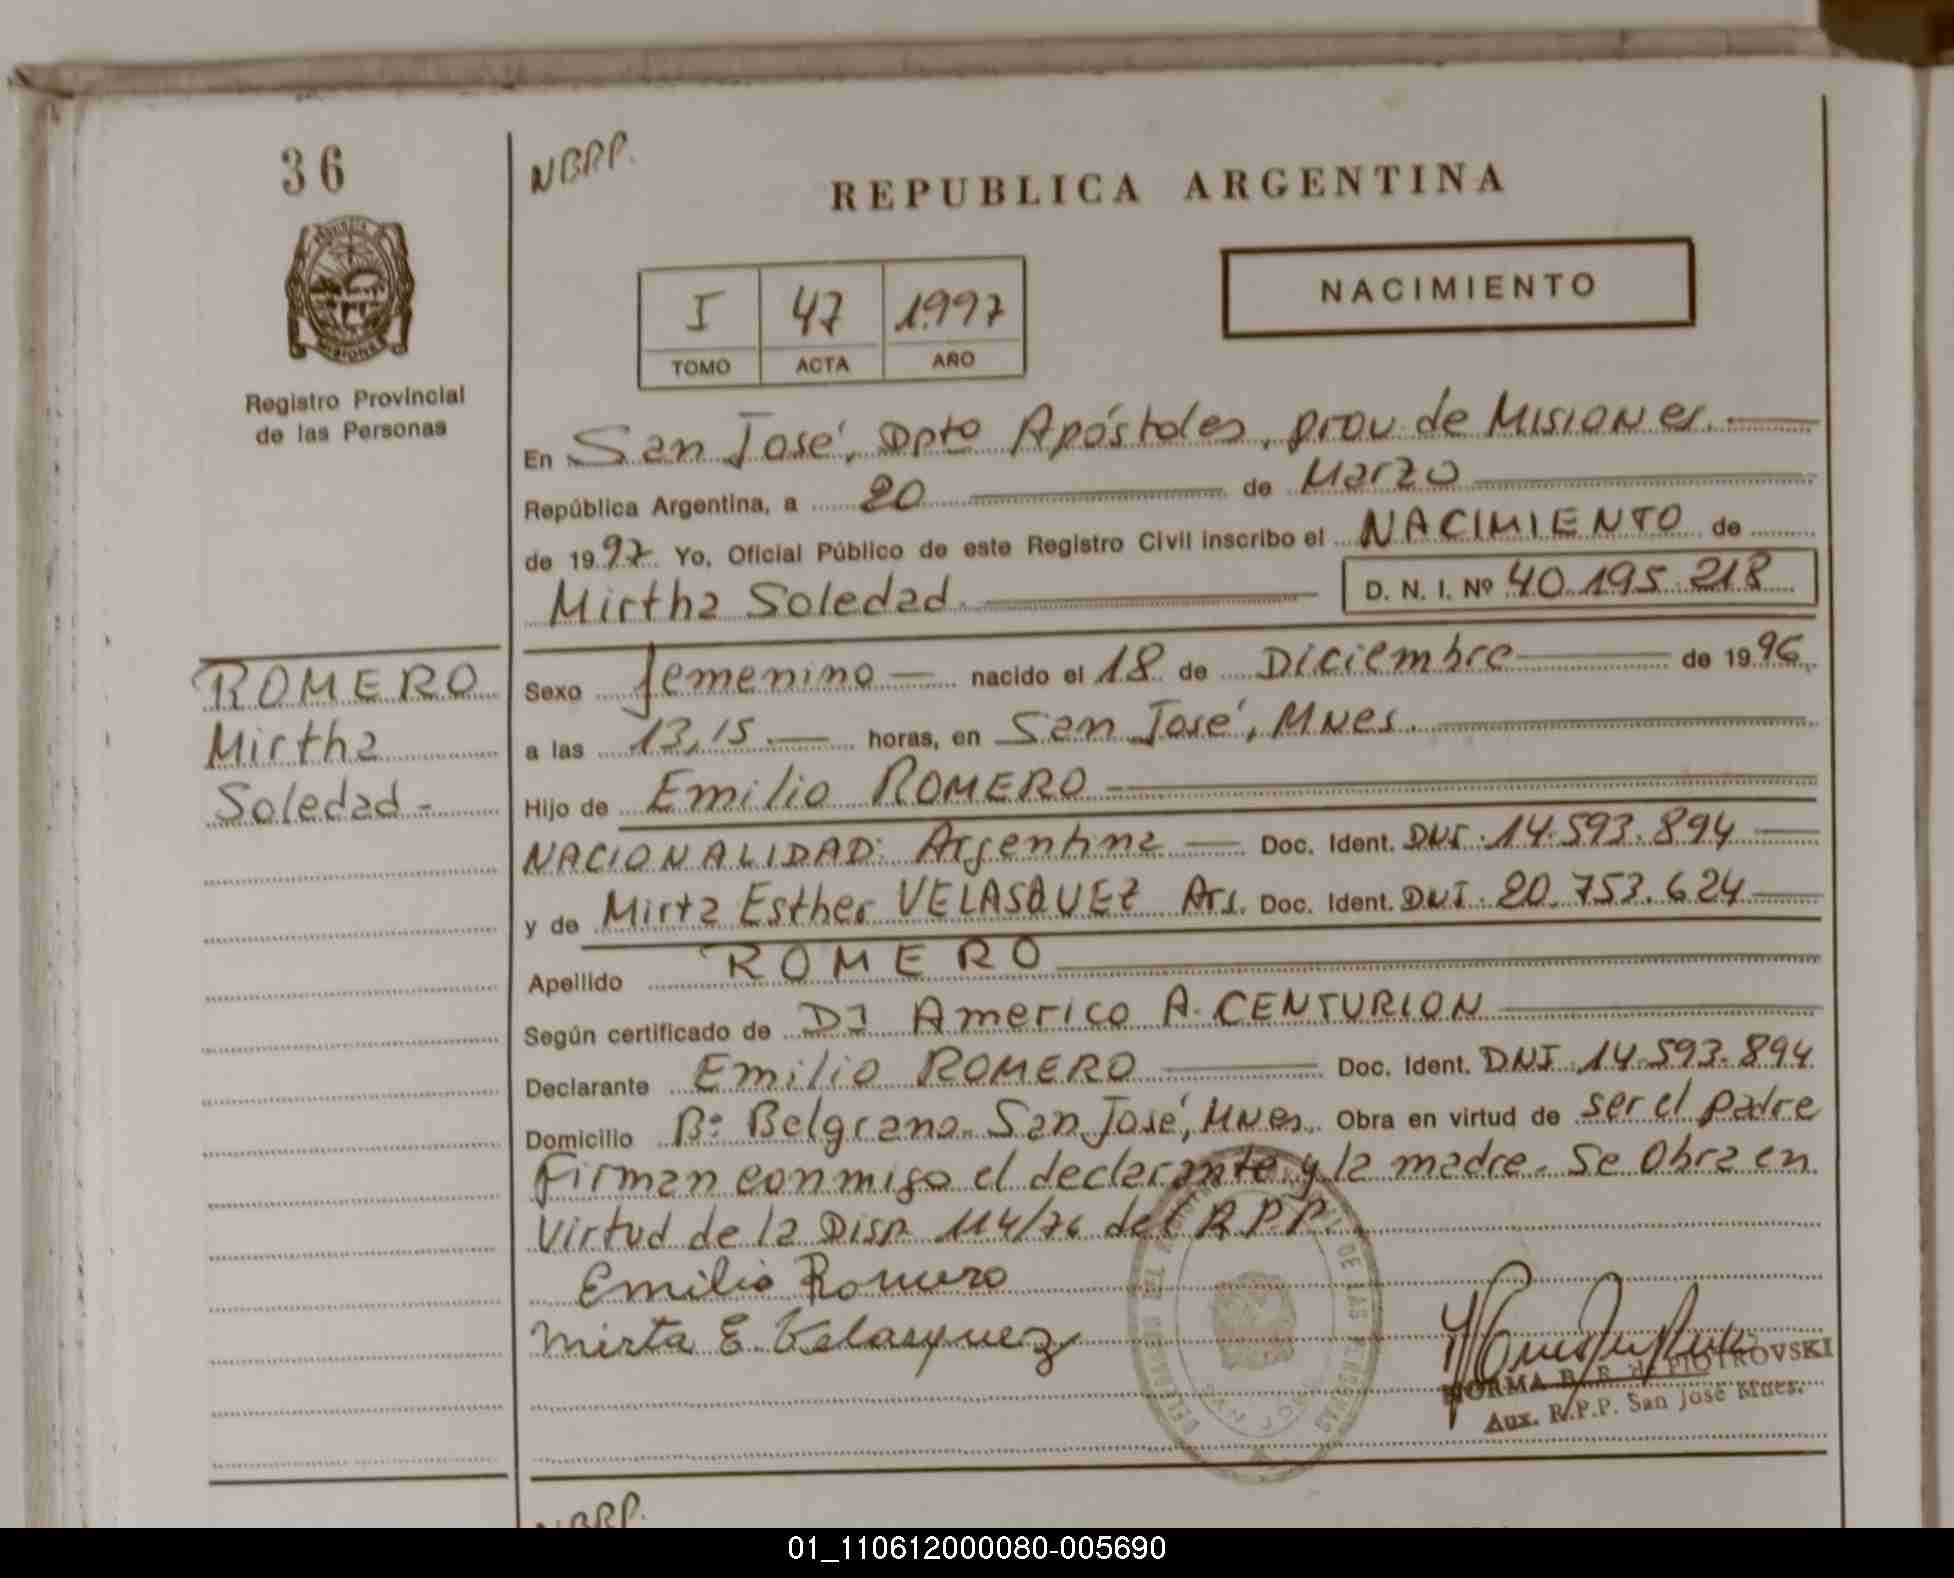 36
NBRP.
REPUBLICA ARGENTINA
PROVINCIA DE
MISIONES
Registro Provincial
de las Personas
I 47 1997
TOMO ACTA AÑO
NACIMIENTO
En San José, Dpto Apóstoles, prov de MISIONes.
República Argentina, a 20 de Marzo
de 1997 Yo, Oficial Público de este Registro Civil inscribo el NACIMIENTO de
Mirtha Soledad. D. N. I. Nº 40.195.218
ROMERO
Mirtha
Soledad-
Sexo femenino nacido el 18 de Diciembre de 1996
a las 13,15. horas, en San José, MNes.
Hijo de Emilio ROMERO
NACIONALIDAD: Argentina Doc. Ident. DNI. 14.593.894
y de Mirta Esther VELASQUEZ Arg. Doc. Ident. DNI. 20.753.624
Apellido ROMERO
Según certificado de Americo A. CENTURION
Declarante Emilio ROMERO Doc. Ident. DNI. 14.593.894
Domicilio Bº Belgrano. San José, MNes. Obra en virtud de ser el padre
Firman conmigo el declarante y la madre. Se Obra en
Virtud de la Disp. 114/76 del R.P.P.
Emilio Romero
Mirta E. Velasquez
DE LAS PERSONAS
NORMA B. R. de PIOTROVSKI
Aux. R.P.P. San José Mnes.
NBRP.
01_110612000080-005690